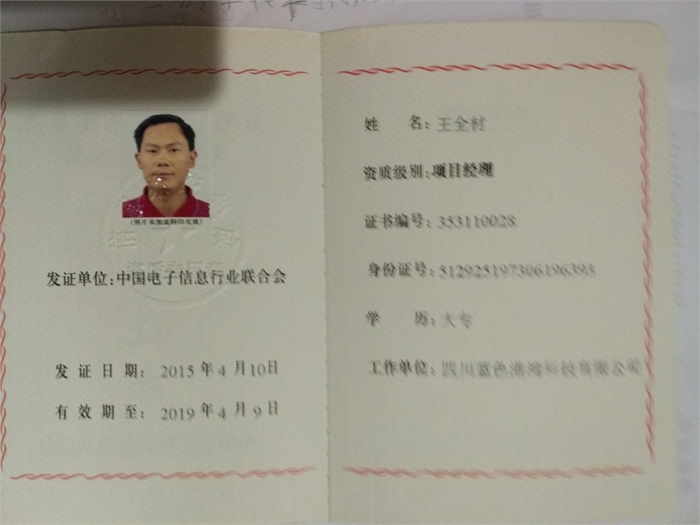 (照片未加盖钢印无效)
发证单位:中国电子信息行业联合会
发证日期: 2015年4月10日
有效期至: 2019年4月9日
姓 名: 王全村
资质级别: 项目经理
证书编号: 353110028
身份证号: 512925197306196393
学 历: 大专
工作单位: 四川蓝色港湾科技有限公司